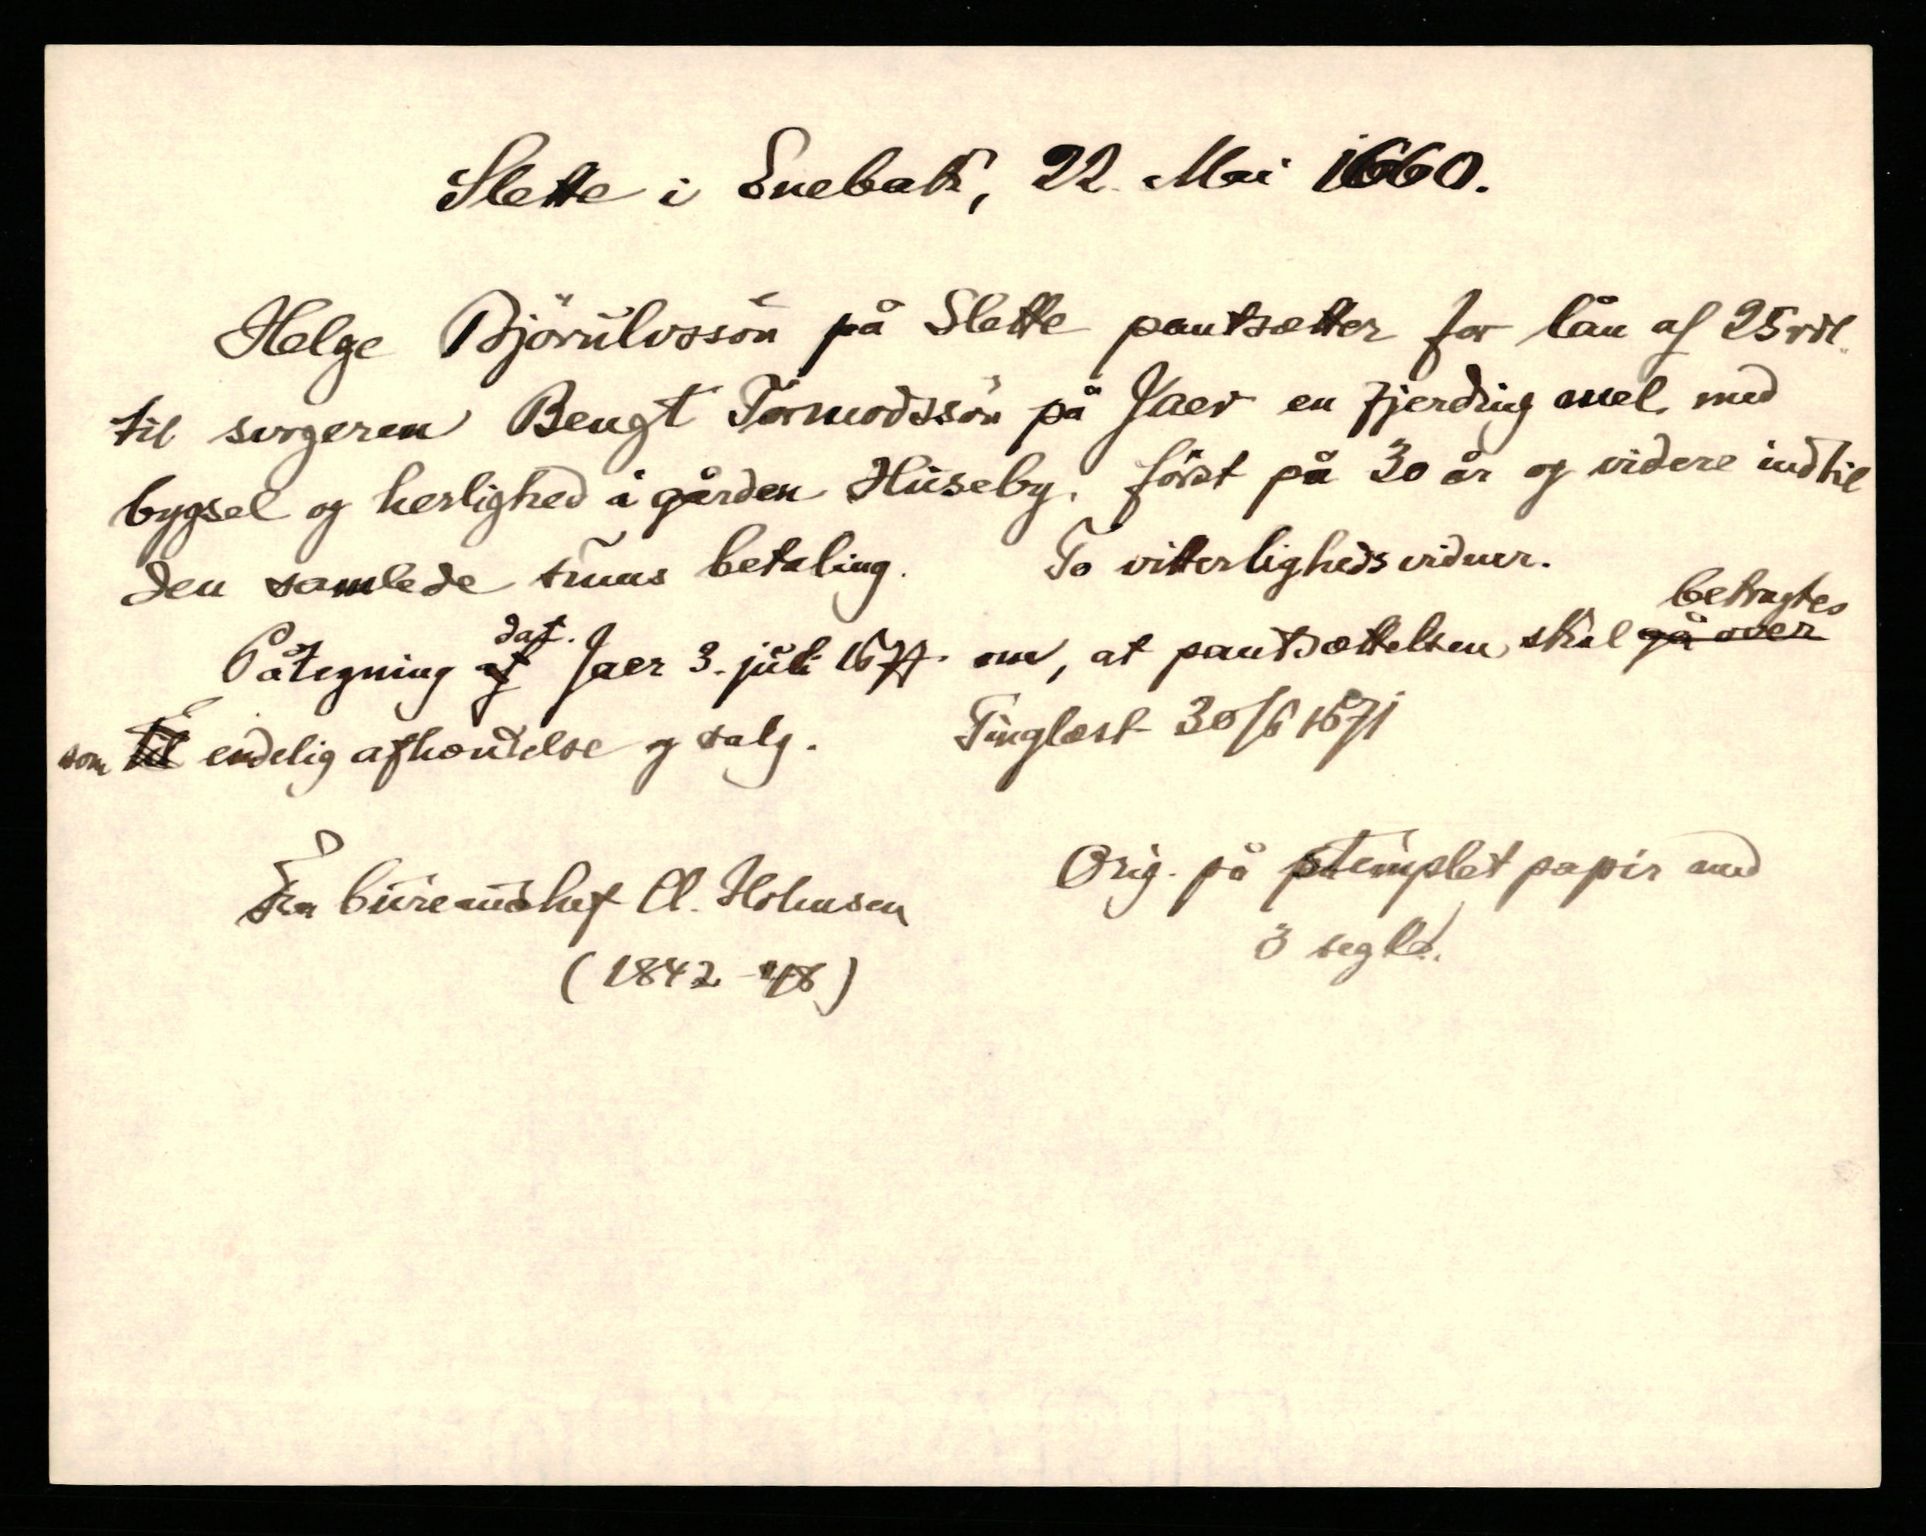 Slette i Enebak, 22. Mai 1660.
Helge Björulvssön på Slette pantsætter for lån af 25 rdl.
til svogeren Bengt Tormodssön på Jaer en fjerding mel med
bygsel og herlighed i gården Huseby, först på 30 år og videre indtil
den samlede sums betaling. To vitterlighedsvidner.
Påtegning dat. Jaer 3. juli 1677 om, at pantsættelsen skal gå over betragtes
som til endelig afhændelse og salg. Tinglæst 30/6 1671
Fra bureauchef A. Holmsen Orig. på stemplet papir med
(1842-48) 3 segl.